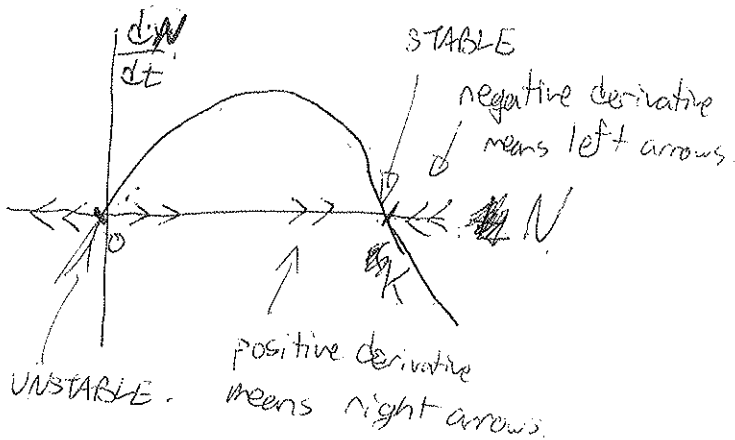 dN
dt
STABLE
negative derivative
means left arrows.
N
0
K
UNSTABLE.
positive derivative
means right arrows.